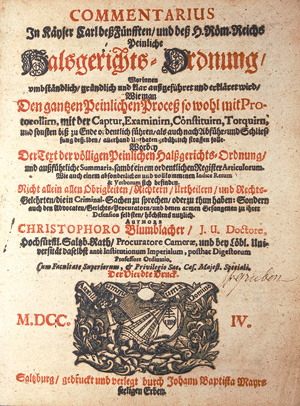 COMMENTARIUS
In Käyser Carl deß Fünfften / und deß H. Röm. Reichs
Peinliche
Halsgerichts-Ordnung /
Worinnen
umbständlich / gründlich und klar außgeführet und erkläret wird /
Wie man
Den gantzen Peinlichen Proceß so wohl mit Pro-
tocollirn, mit der Captur, Examinirn, Constituirn, Torquirn,
und sonsten biß zu Ende ordentlich führen / als auch nach Abführ- und Schließ-
sung deßelben / allerhand Ubelthaten gebührlich straffen solle
Wobey
Der Text der völligen Peinlichen Halßgerichts-Ordnung /
und außführliche Summaria, sambt einem ordentlichen Register Articulorum.
Wie auch einem absonderlichen und vollkommenen Indice Rerum
& Verborum sich befinden.
Nicht allein allen Obrigkeiten / Richtern / Urtheilern / und Rechts-
Gelehrten / die in Criminal-Sachen zu sprechen / oder zu thun haben: Sondern
auch den Advocaten / Gerichts-Procuratorn / und denen armen Gefangenen zu ihrer
Defension selbsten / höchstens nutzlich.
AUTHORE
CHRISTOPHORO Blumblacher / J. U. Doctore,
Hochfürstl. Saltzb. Rath / Procuratore Cameræ, und bey Löbl. Uni-
versität daselbst antè Institutionum Imperialium, posthac Digestorum
Professore Ordinario,
Cum Facultate Superiorum, & Privilegio Sac. Cæs. Majest. Speciali.
Der Vierdte Druck.
M.DCC. IV.
Saltzburg / gedruckt und verlegt durch Johann Baptista Mayrs
seeligen Erben.